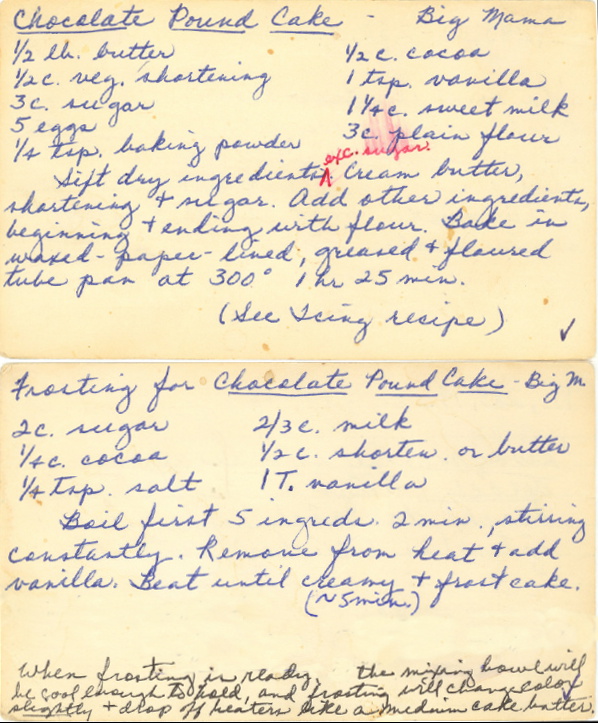 Chocolate Pound Cake - Big Mama
1/2 lb. butter
1/2 c. veg. shortening
3c. sugar
5 eggs
1/4 tsp. baking powder
1/2 c. cocoa
1 tsp. vanilla
1 1/4 c. sweet milk
3c. plain flour
exc. sugar
Sift dry ingredients. Cream butter,
shortening + sugar. Add other ingredients,
beginning + ending with flour. Bake in
waxed-paper-lined, greased + floured
tube pan at 300° 1 hr 25 min.
(See Icing recipe) ✓
Frosting for Chocolate Pound Cake - Big M
2c. sugar
1/4c. cocoa
1/4 tsp. salt
2/3 c. milk
1/2 c. shorten. or butter
1 T. vanilla
Boil first 5 ingreds. 2 min., stirring
constantly. Remove from heat + add
vanilla. Beat until creamy + frost cake.
(~5min.)
When frosting is ready, the mixing bowl will
be cool enough to hold, and frosting will change color
slightly + drop off beaters like a medium cake batter.